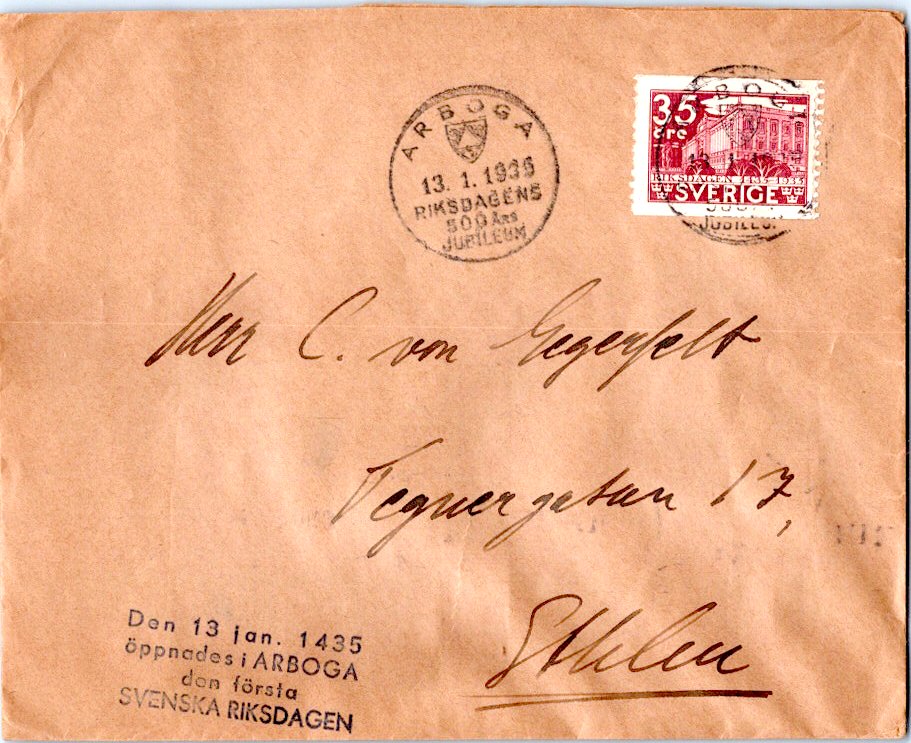 ARBOGA
13. 1. 1935
RIKSDAGENS
500 ÅRS
JUBILEUM
35
öre
RIKSDAGEN 1435-1935
SVERIGE
Herr C. von Gegerfelt
Tegnergatan 17,
Sthlm
Den 13 jan. 1435
öppnades i ARBOGA
den första
SVENSKA RIKSDAGEN